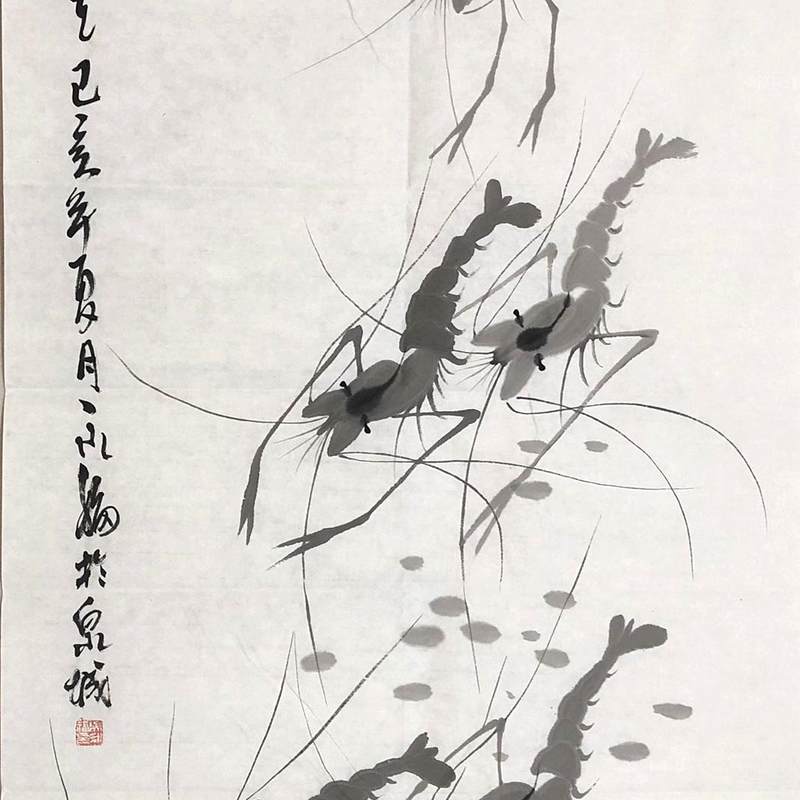 己亥年夏月永编於泉城